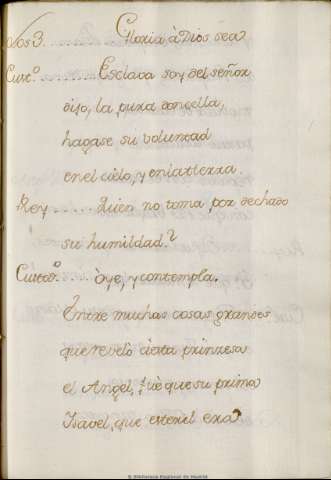 Los 3. Gloria à Dios sea
Curº. Esclava soy del señor
dijo, la pura donçella,
hagase su voluntad
en el cielo, y en la tierra
Rey ....... Quien no toma por dechado
su humildad?
Curº. Òye, y contempla.
Entre muchas cosas grandes
que revelò à esta prinzesa
el Angel, fuè que su prima
Isavel, que esteril era
© Biblioteca Regional de Madrid